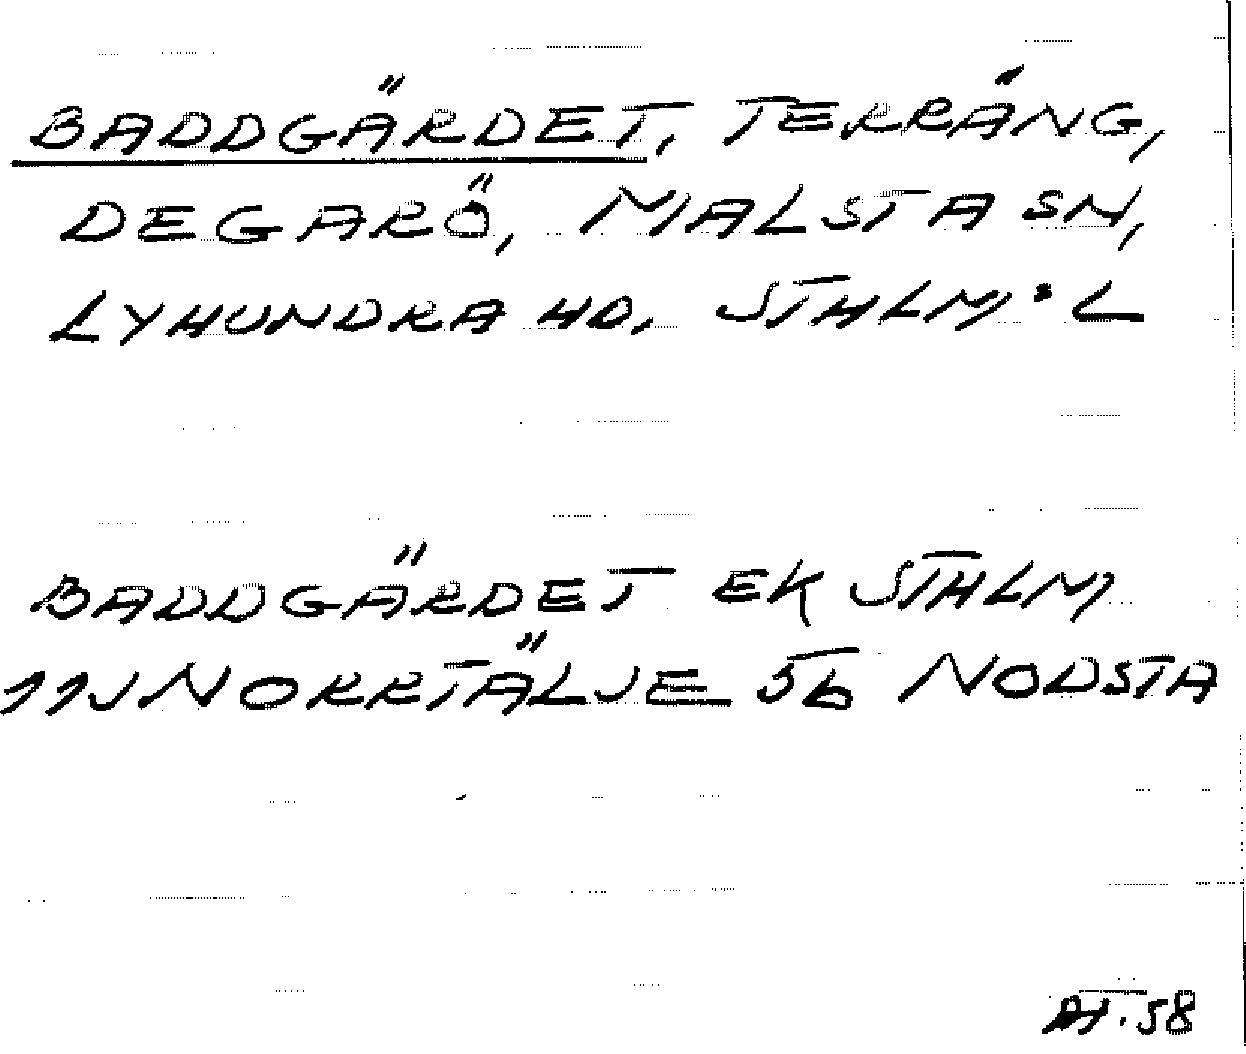 BADDGÄRDET, TERRÄNG,
DEGARÖ, MALSTA SN,
LYHUNDRA HD, STHLM:L
BADDGÄRDET EK STHLM
11J NORRTÄLJE 5b NODSTA
AT.58